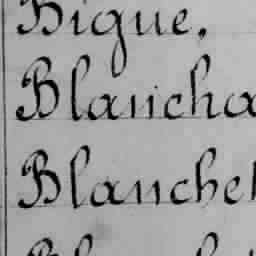 Bigue.
Blancha
Blanche